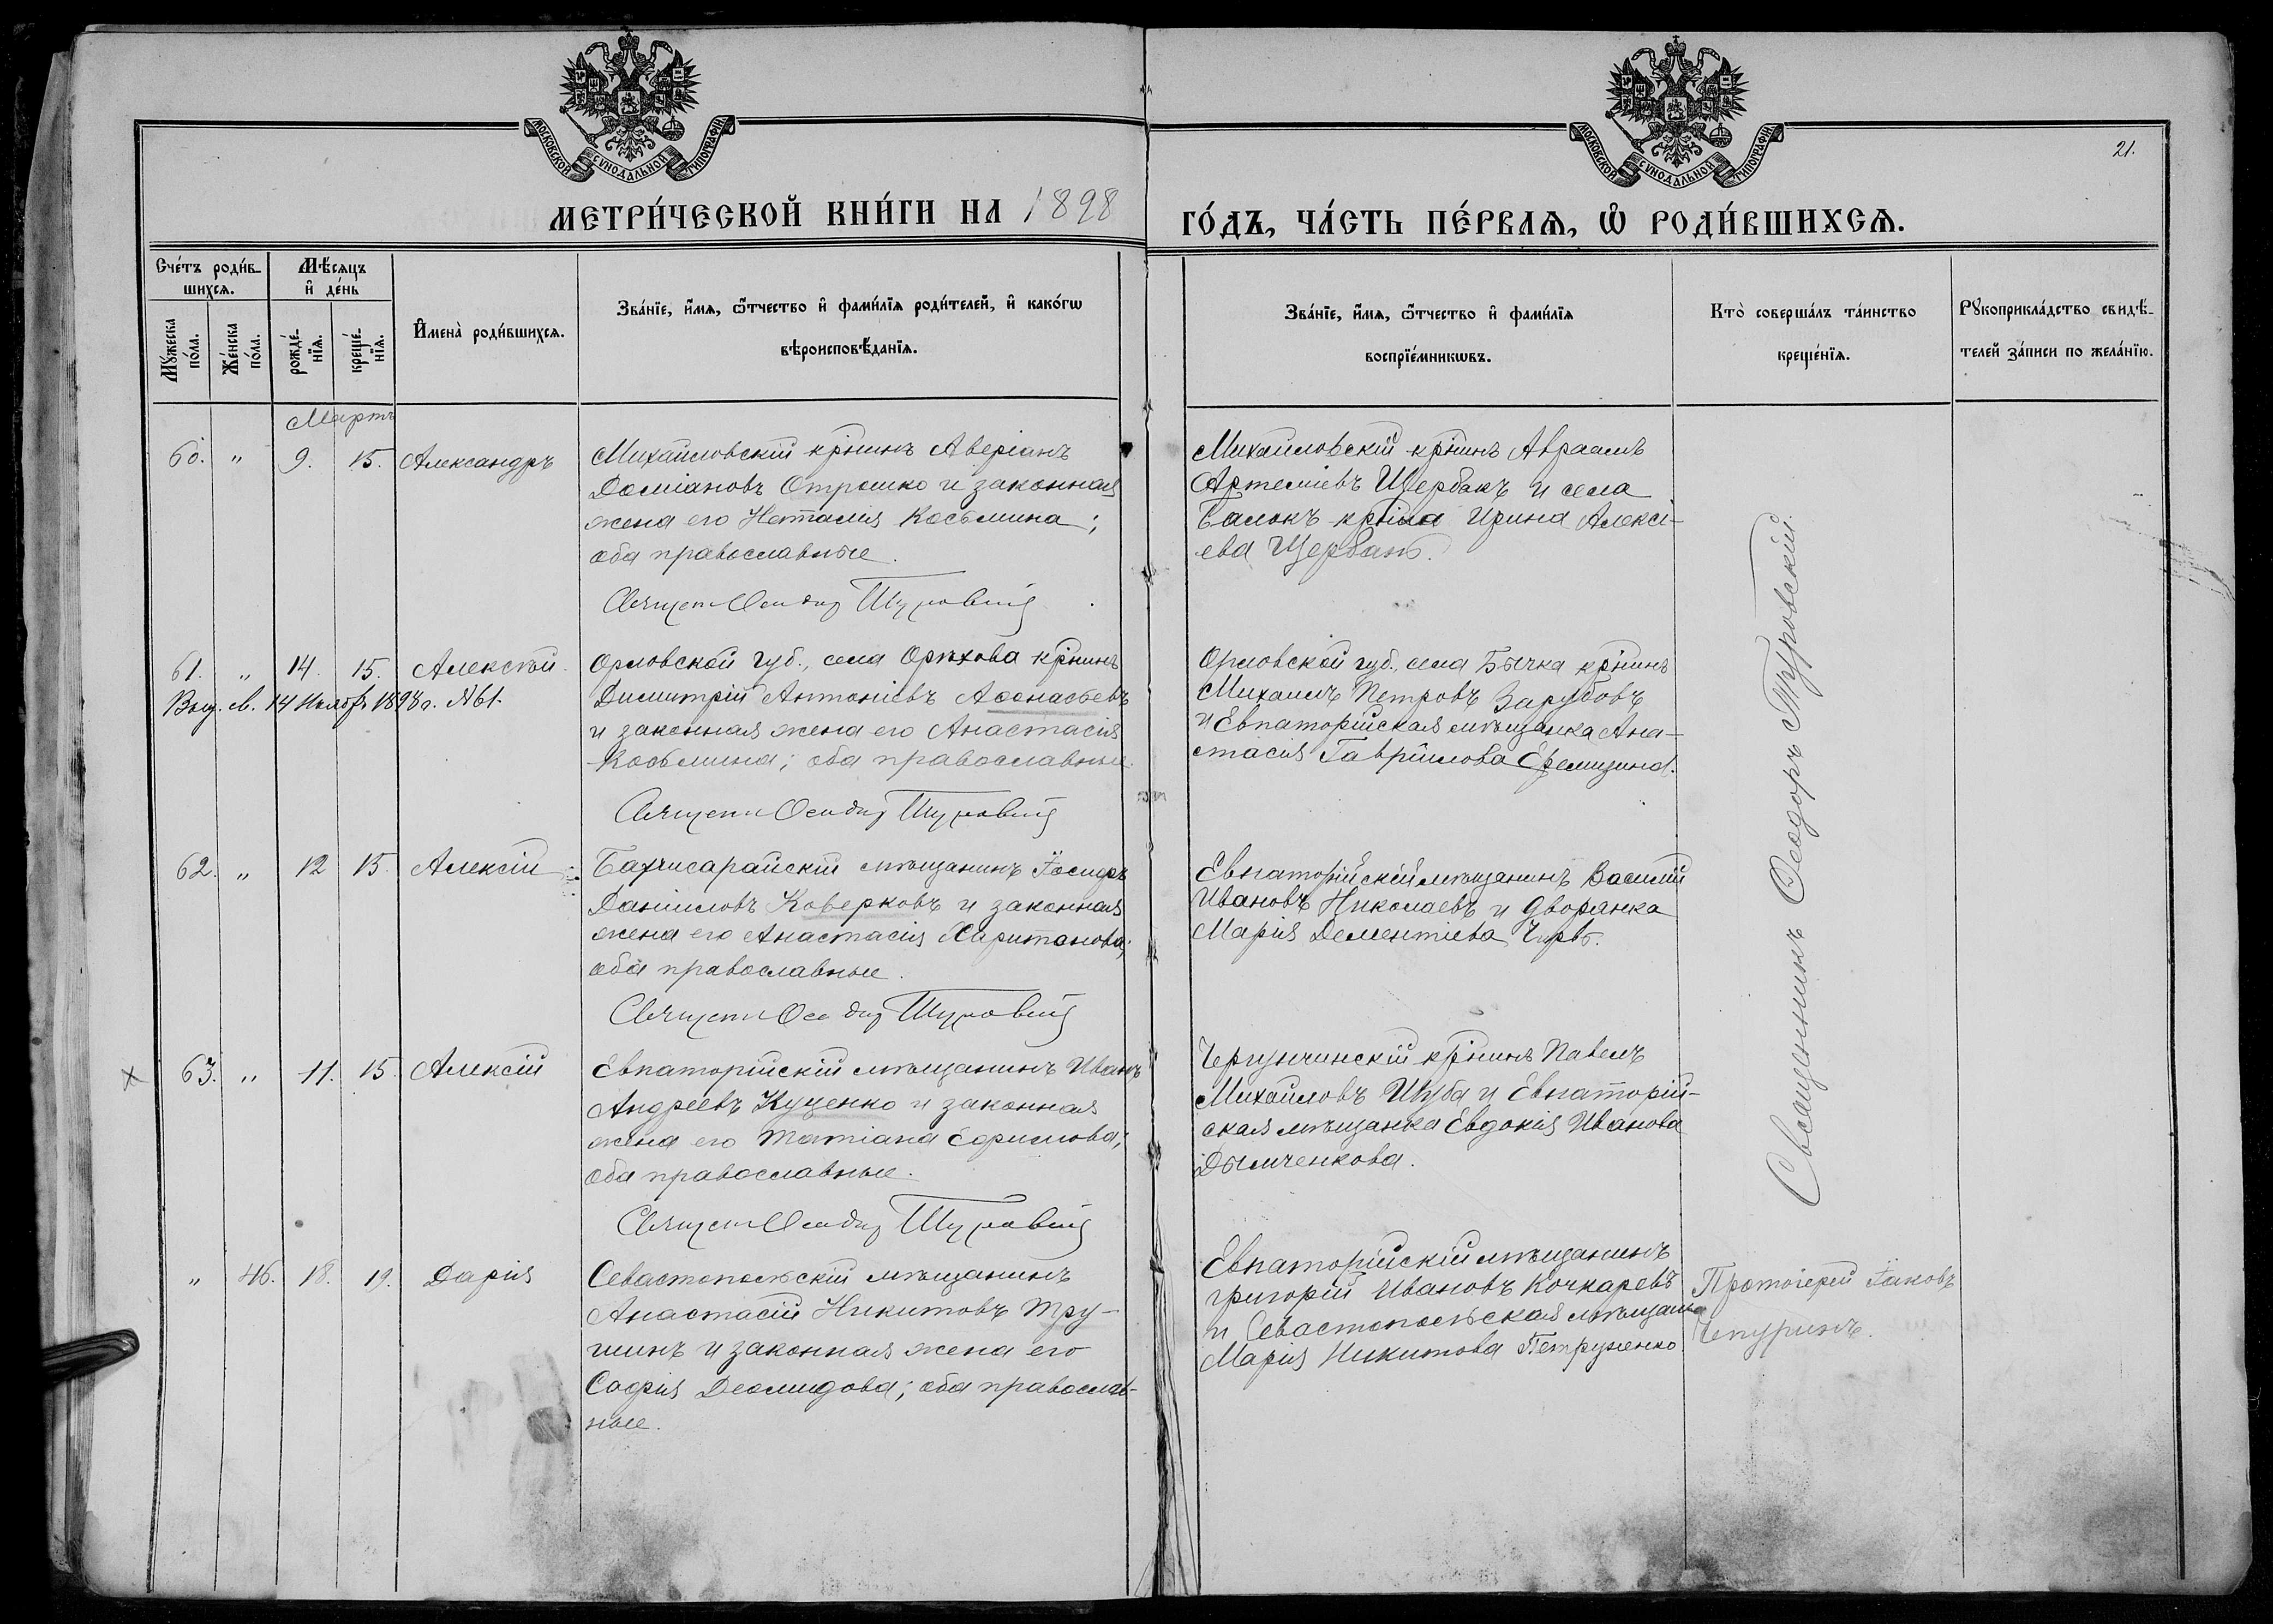 МОСКОВСКОЙ СѴНОДАЛЬНОЙ ТИПОГРАФІИ
МОСКОВСКОЙ СѴНОДАЛЬНОЙ ТИПОГРАФІИ
21.
МЕТРИ́ЧЕСКОЙ КНИ́ГИ НА 1898
ГО́ДЪ, ЧА́СТЬ ПЕ́РВАѦ, Ѡ҆ РОДИ́ВШИХСѦ.
Сче́тъ роди́в-
шихсѧ.
Мѣ́сѧцъ
и҆ де́нь
Мꙋ́жеска
по́ла.
Же́нска
по́ла.
рожде́-
нїѧ.
креще́-
нїѧ.
И҆мена̀ роди́вшихсѧ.
Зва́нїе, и҆́мѧ, ѻ҆́тчество и҆ фами́лїѧ роди́телей, и҆ како́гѡ
вѣроисповѣ́данїѧ.
Зва́нїе, и҆́мѧ, ѻ҆́тчество и҆ фами́лїѧ
воспрїе́мникѡвъ.
Кто̀ соверша́лъ та́инство
креще́нїѧ.
Рꙋкоприкла́дство свидѣ́-
телей за́писи по жела́нїю.
Мартъ
60. " 9. 15. Александръ
Михайловскій крнинъ Аверіанъ
Доміановъ Отрошко и законная
жена его Наталия Косьмина;
оба православные.
Священ Ѳеодор Туровскій
Михайловскій крнинъ Авраамъ
Артеміевъ Щербакъ и села
Балокъ Ирина Алексі-
ева
61. " 14. 15. Алексѣй
Выд. м. 14 Ноября 1898 г. №61.
Орловской губ., села Орѣхова крнинъ
Димитрій Антоніевъ Аѳонасьевъ
и законная жена его Анастасія
Косьмина; оба православные.
Священ Ѳеодор Туровскій
Орловской губ., села Бычка крнинъ
Михаилъ Петровъ Зарубовъ
и Евпаторійская мѣщанка Ана-
стасія Гавріилова
62. " 12 15 Алексій
Бахчисарайскій мѣщанинъ Іосифъ
Даніиловъ Коверковъ и законная
жена его Анастасія Харитонова;
оба православные.
Священ Ѳеодор Туровскій
Евпаторійскій мѣщанинъ Василій
Ивановъ Николаевъ и дворянка
Марія Дементіева
х 63. " 11. 15. Алексій
Евпаторійскій мѣщанинъ Иванъ
Андреевъ Куценко и законная
жена его Татіана Ефимова;
оба православные.
Священ Ѳеодор Туровскій
крнинъ Павелъ
Михайловъ Шуба и Евпаторій-
ская мѣщанка Евдокія Иванова
Дымченкова.
Священникъ Ѳеодоръ Туровскій.
" 46. 18. 19. Дарія
Севастопольскій мѣщанинъ
Анастасій Никитовъ Тру-
шинъ и законная жена его
Софія Деомидова; оба православ-
ные.
Евпаторійскій мѣщанинъ
Григорій Ивановъ Кочкаревъ
и Севастопольская мѣщанка
Марія Никитова Петруненко
Протоіерей Іаковъ
Чепуринъ.